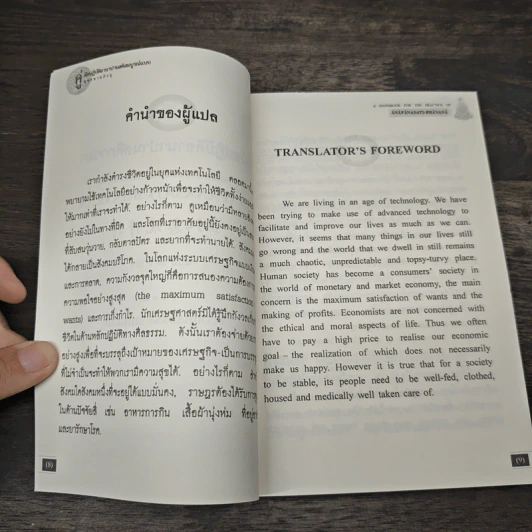 คู่
คำนำของผู้แปล
เรากำลังดำรงชีวิตอยู่ในยุคแห่งเทคโนโลยี
พยายามใช้เทคโนโลยีอย่างก้าวหน้าเพื่อจะทำให้ชีวิต
ให้มากเท่าที่เราจะทำได้ อย่างไรก็ตาม ดูเหมือนว่ามี
อย่างยังไปในทางที่ผิด และโลกที่เราอาศัยอยู่นี้ยังคง
ที่สับสนวุ่นวาย, กลับตาลปัตร และยากที่จะทำนายได้
ได้กลายเป็นสังคมบริโภค ในโลกแห่งระบบเศรษฐกิจ
และการตลาด, ความกังวลจุดใหญ่ก็คือการสนองความต้องการ
ความพอใจอย่างสูงสุด (the maximum satisfaction
wants) และการเก็งกำไร นักเศรษฐศาสตร์มิได้รู้สึกกังวล
ชีวิตในด้านหลักปฏิบัติทางศีลธรรม ดังนั้นเราต้องจ่าย
อย่างสูงเพื่อที่จะบรรลุถึงเป้าหมายของเศรษฐกิจ-เป็นการ
ที่ไม่จำเป็นจะทำให้พวกเรามีความสุขได้ อย่างไรก็ตาม
สังคมใดสังคมหนึ่งที่จะอยู่ได้แบบมั่นคง, ราษฎรต้องได้รับ
ในด้านปัจจัยสี่ เช่น อาหารการกิน เสื้อผ้านุ่งห่ม
และยารักษาโรค
(8)
A HANDBOOK FOR THE PRACTICE OF
ĀNĀPĀNASATI-BHĀVANĀ
TRANSLATOR'S FOREWORD
We are living in an age of technology. We have
been trying to make use of advanced technology to
facilitate and improve our lives as much as we can.
However, it seems that many things in our lives still
go wrong and the world that we dwell in still remains
a much chaotic, unpredictable and topsy-turvy place.
Human society has become a consumers' society in
the world of monetary and market economy, the main
concern is the maximum satisfaction of wants and the
making of profits. Economists are not concerned with
the ethical and moral aspects of life. Thus we often
have to pay a high price to realise our economic
goal – the realization of which does not necessarily
make us happy. However it is true that for a society
to be stable, its people need to be well-fed, clothed,
housed and medically well taken care of.
(9)